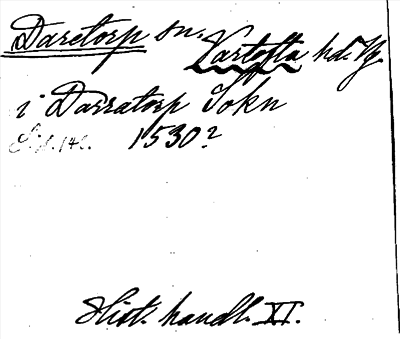 Daretorp sn. Vartofta hd. Vg.
i Darratorp Sokn
Sid. 142. 1530?
Hist. handl. XI.